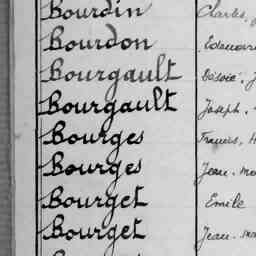 Bourdin Charles,
Bourdon Edouard
Bourgault Désiré, J
Bourgault Joseph.
Bourges Francis, H
Bourges Jean-ma
Bourget Emile
Bourget Jean-ma